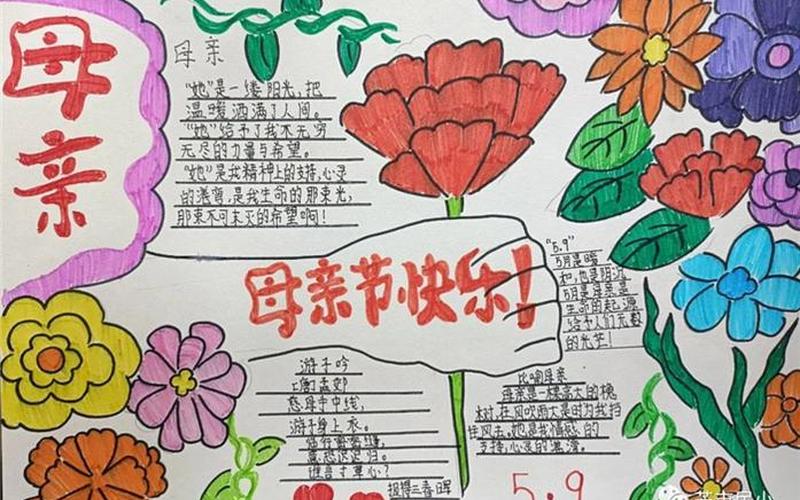 母亲
母亲
“她”是一缕阳光,把
温暖洒满了人间。
“她”给予了我不无穷
无尽的力量与希望。
“她”是我精神上的支持,心灵
的港弯,是我生命的那束光,
那束不可末灭的希望啊!
母亲节快乐!
“5.9”
5月是暖
和,也是阴沉
5月是母亲是
生命的起源
给予人们无数
的光芒!
游子吟
[唐]孟郊
慈母手中线,
游子身上衣。
临行密密缝,
意恐迟迟归。
谁言寸草心?
报得三春晖
比喻母亲
母亲是一棵高大的槐
树,在风吹雨大是时为我挡
住风去。她是我情感的
支持,心灵的港湾。
5.9